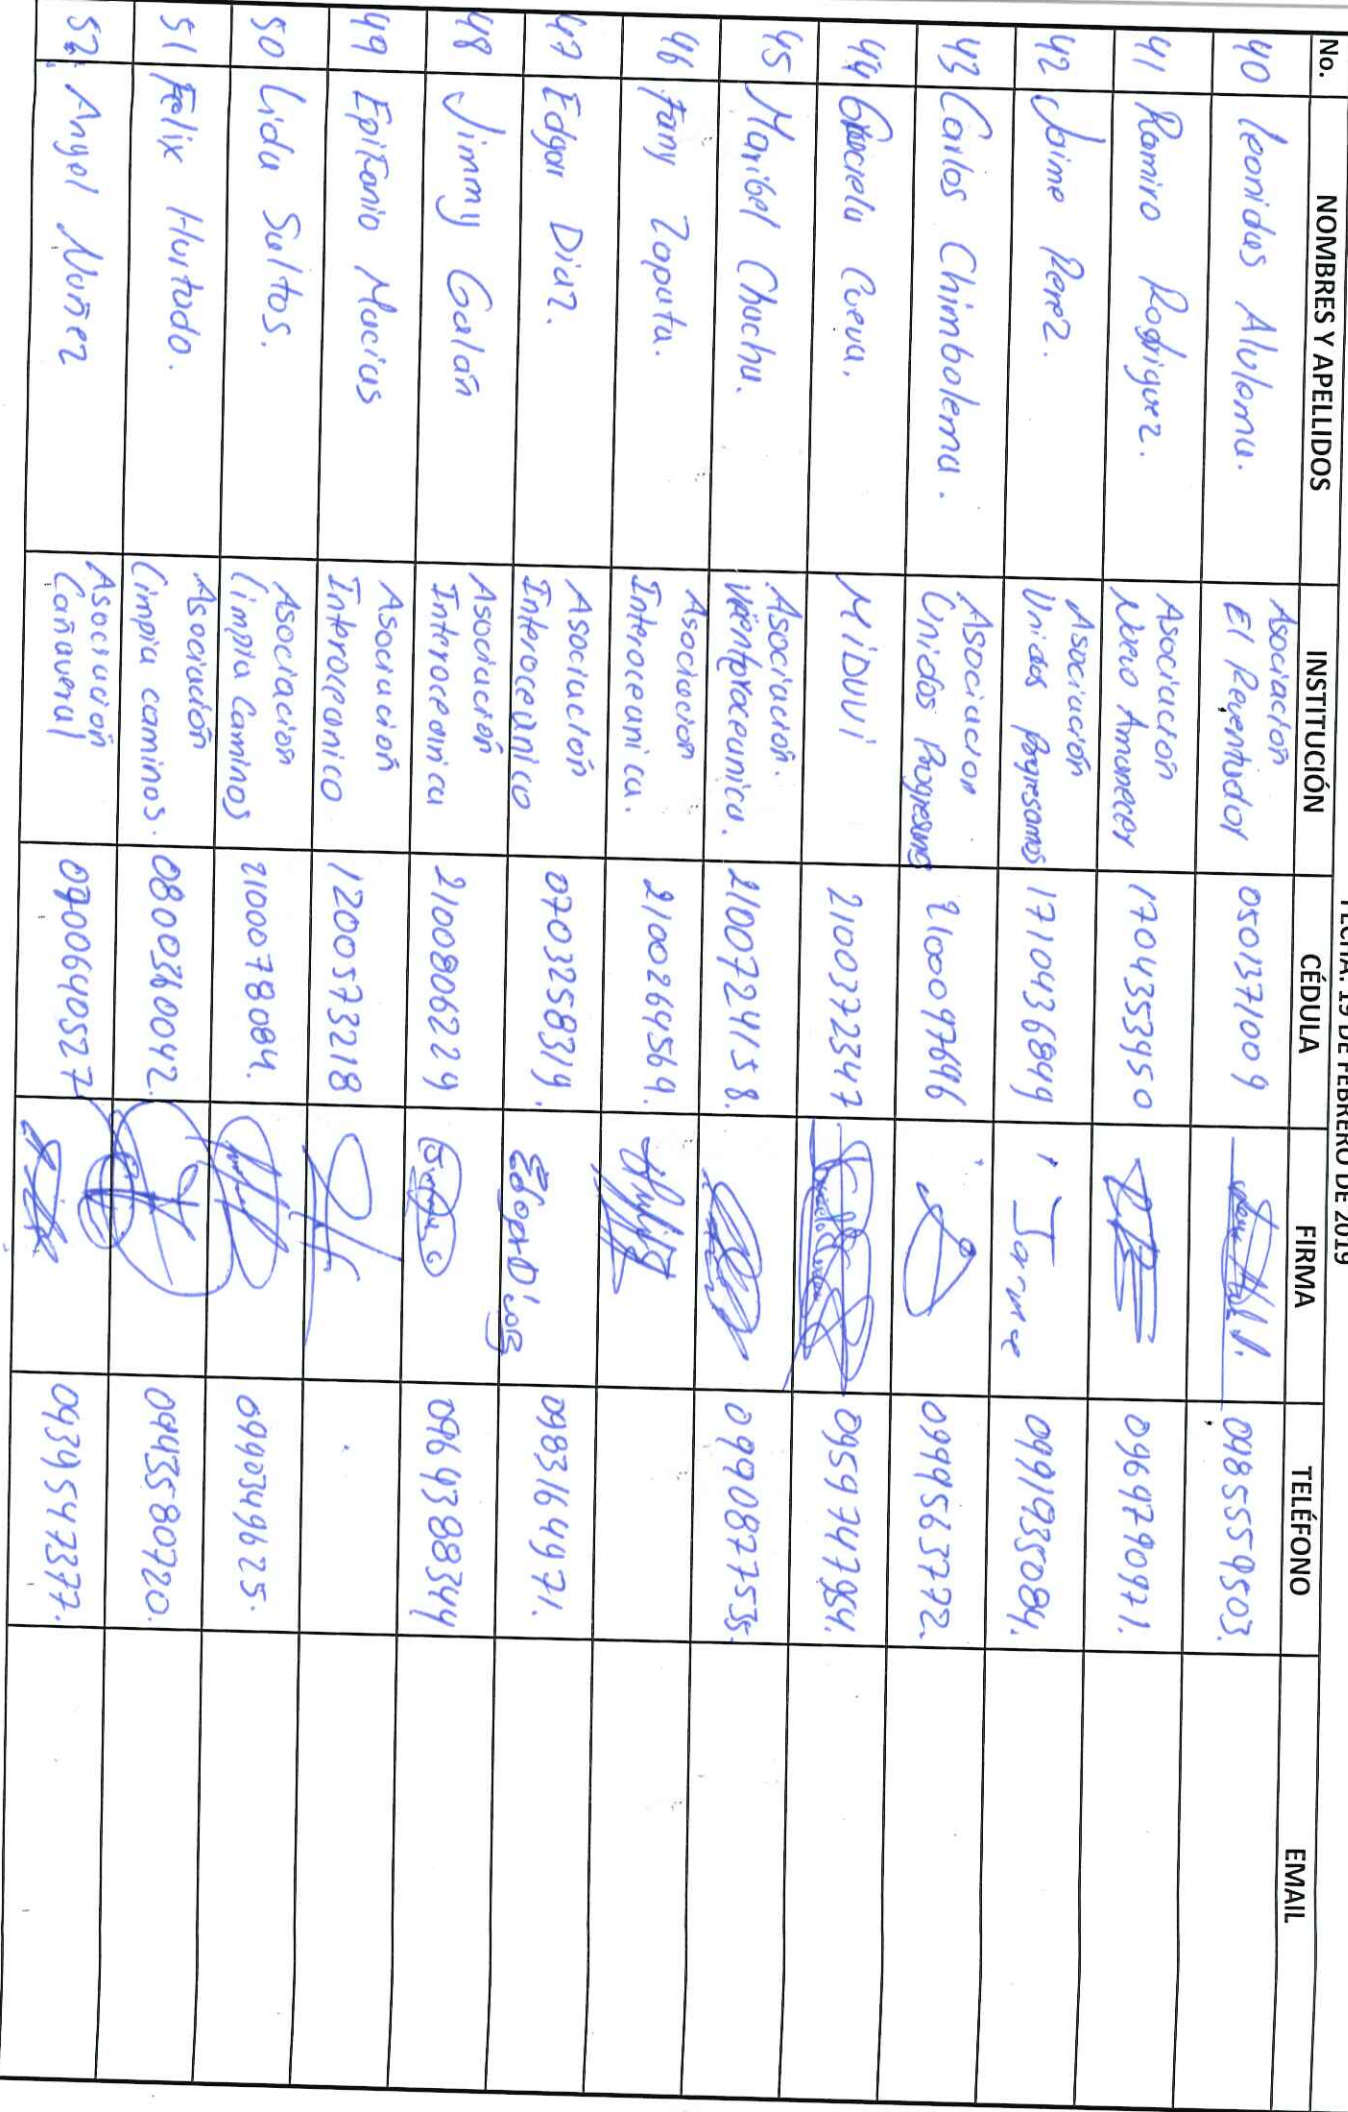 FECHA: 19 DE FEBRERO DE 2019
No. NOMBRES Y APELLIDOS INSTITUCIÓN CÉDULA FIRMA TELÉFONO EMAIL
40 Leonidas Alulema. Asociación El Reventador 0501371009 0985559503.
41 Ramiro Rodriguez. Asociación Nuevo Amanecer 1704353950 0969790971.
42 Jaime Perez. Asociación Unidos Progresamos 1710436849 Jaime 0991935084.
43 Carlos Chimbolema. Asociacion Unidos Progresamos 2100097696 0999563772.
44 Graciela Cueva. MiDUVi 2100372347 0959747984.
45 Maribel Chuchu. Asociación. Interoceanica. 2100724158. 0990877535.
46 Fany Zapata. Asociacion Interoceanica. 2100264569.
47 Edgar Diaz. Asociación Interoceanico 0703258319. Edgar Diaz 0983164971.
48 Jimmy Galan Asociación Interoceanica 2100806229 0969388344
49 Epifanio Macias Asociación Interoceanico 1200573218
50 Lida Saltos. Asociación Limpia Caminos 2100078084. 0990349625.
51 Felix Hurtado. Asociación Limpia caminos. 0800360042. 0943580720.
52. Angel Nuñez Asociación Cañaveral 0700640527 0939547377.